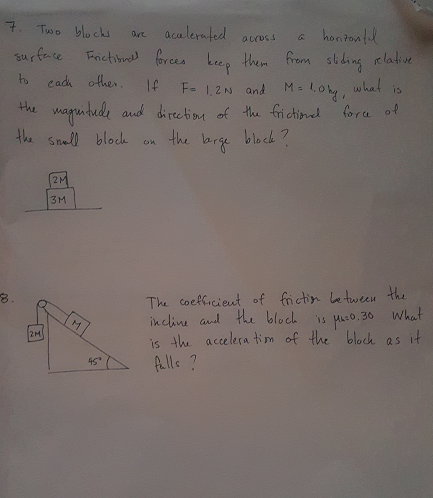 7. Two blocks are accelerated across a horizontal
surface Frictional forces keep them from sliding relative
to each other. If F= 1.2N and M= 1.0kg, what is
the magnitude and direction of the frictional force of
the small block on the large block?
2M
3M
8.
The coefficient of friction between the
incline and the block is μk=0.30 What
is the acceleration of the block as it
falls?
M
2M
45°